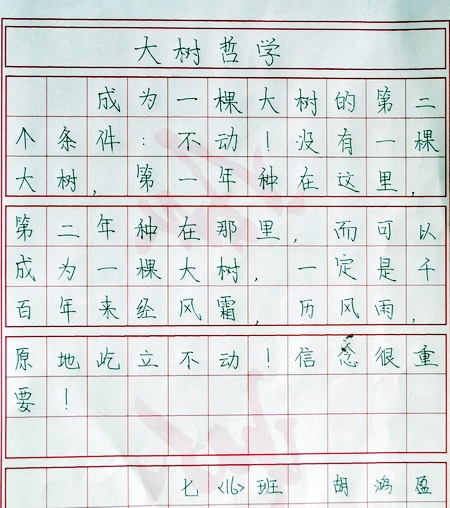 大树哲学
成为一棵大树的第二
个条件：不动！没有一棵
大树，第一年种在这里，
第二年种在那里，而可以
成为一棵大树，一定是千
百年来经风霜，历风雨，
原地屹立不动！信念很重
要！
七<16>班 胡鸿盈